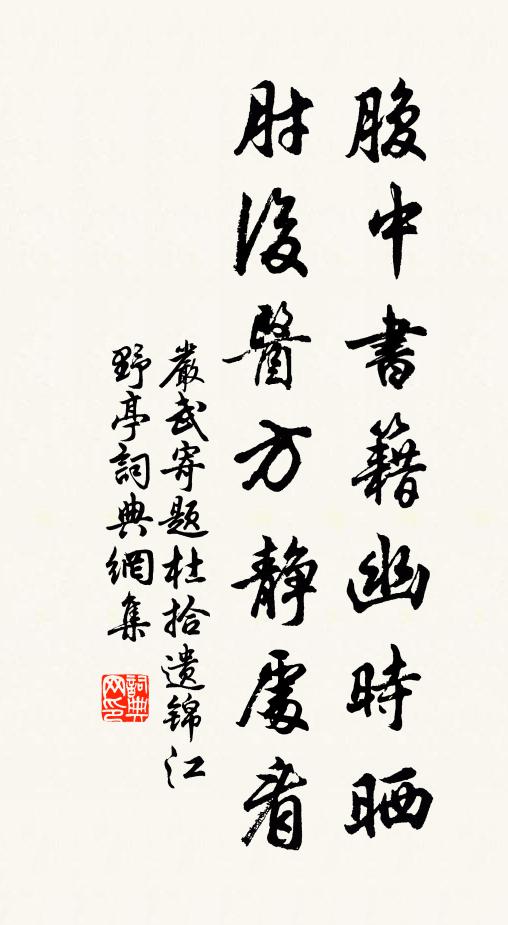 腹中書籍幽時晒
肘後醫方静處看
嚴武寄題杜拾遺錦江
野亭詞典網集
詞典
网印